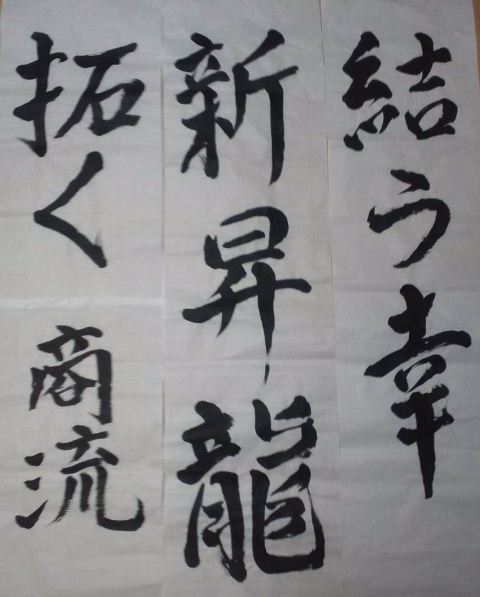 結う幸
新昇龍
拓く商流